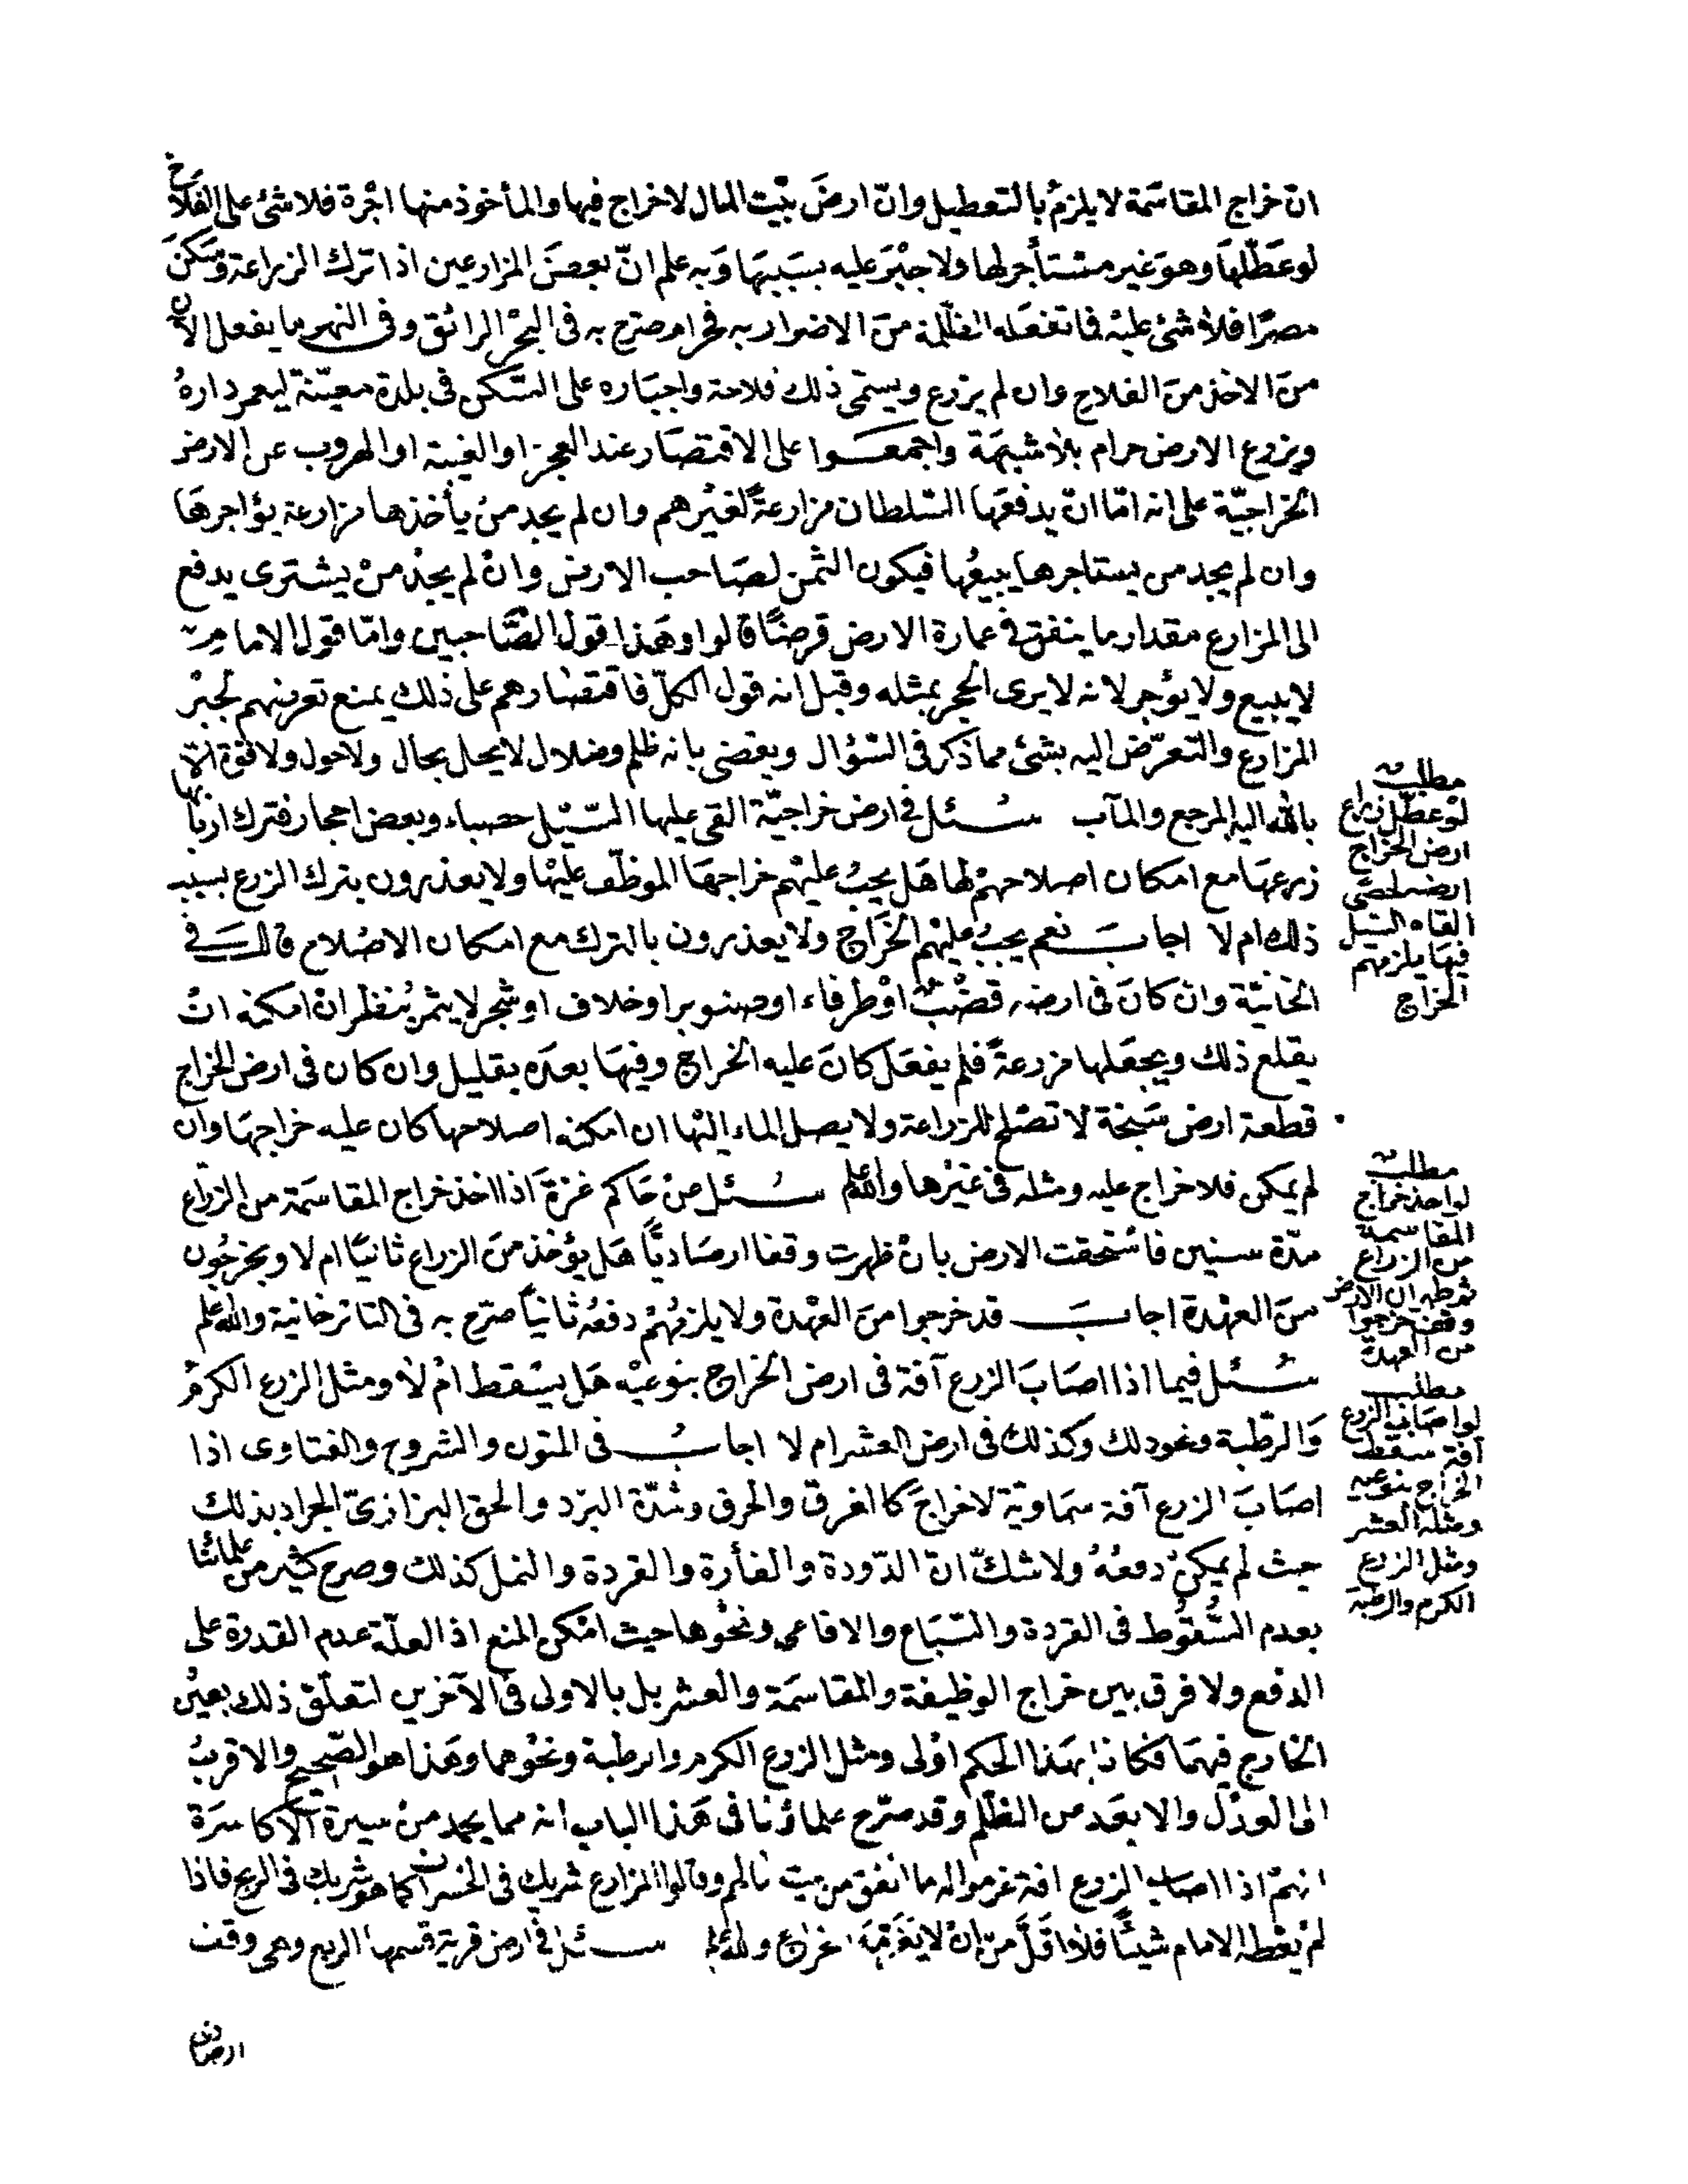 ان خراج المقاسمة لا يلزم بالتعطيل وان ارض بيت المال لاخراج فيها والمأخوذ منها اجرة فلا شئ على الفلاح
لو عطلها وهو غير مستأجر لها ولا جبر عليه بسببها وبه علم ان بعض المزارعين اذا ترك الزراعة وسكن
مصرا فلا شئ عليه فما تفعله الظلمة من الاضرار به فحرام صرح به فى البحر الرائق وفى النهر ما يفعل الان
من الاخذ من الفلاح وان لم يزرع ويسمى ذلك فلاحة واجباره على السكن فى بلدة معينة ليعمر داره
ويزرع الارض حرام بلا شبهة واجمعوا على الاقتصار عند العجز او الغيبة او الهروب عن الارض
الخراجية على انه اما ان يدفعها السلطان مزارعة لغيرهم وان لم يجد من يأخذها مزارعة يؤاجرها
وان لم يجد من يستاجرها يبيعها فيكون الثمن لصاحب الارض وان لم يجد من يشترى يدفع
الى المزارع مقدار ما ينفق فى عمارة الارض قرضا قالوا وهذا قول الصاحبين واما قول الامام
لا يبيع ولا يؤجر لانه لا يرى الحجر بمثله وقيل انه قول الكل فاقتصارهم على ذلك يمنع تعرضهم لجبر
المزارع والتعرض اليه بشئ مما ذكر فى السؤال ويقضى بانه ظلم وضلال لا يحل بحال ولا حول ولا قوة الا
بالله اليه المرجع والمآب سئل فى ارض خراجية القى عليها السيل حصباء وبعض احجار فترك اربابها
زرعها مع امكان اصلاحهم لها هل يجب عليهم خراجها الموظف عليها ولا يعذرون بترك الزرع بسبب
ذلك ام لا اجاب نعم يجب عليهم الخراج ولا يعذرون بالترك مع امكان الاصلاح قال فى
الخانية وان كان فى ارضه قضب او طرفاء او صنوبر او خلاف او شجر لا يثمر ينظر ان امكنه ان
يقلع ذلك ويجعلها مزرعة فلم يفعل كان عليه الخراج وفيها بعده بقليل وان كان فى ارض الخراج
قطعة ارض سبخة لا تصلح للزراعة ولا يصل الماء اليها ان امكنه اصلاحها كان عليه خراجها وان
لم يمكن فلا خراج عليه ومثله فى غيرها والله اعلم سئل عن حاكم غزة اذا اخذ خراج المقاسمة من الزراع
مدة سنين فاستحقت الارض بان ظهرت وقفا ارصاديا هل يؤخذ من الزراع ثانيا ام لا ويخرجون
من العهدة اجاب قد خرجوا من العهدة ولا يلزمهم دفعه ثانيا صرح به فى التاترخانية والله اعلم
سئل فيما اذا اصاب الزرع آفة فى ارض الخراج بنوعيه هل يسقط ام لا ومثل الزرع الكرم
والرطبة ونحو ذلك وكذلك فى ارض العشر ام لا اجاب فى المتون والشروح والفتاوى اذا
اصاب الزرع آفة سماوية لا خراج كالغرق والحرق وشدة البرد والحق البزازى الجراد بذلك
حيث لم يمكن دفعه ولا شك ان الدودة والفأرة والقردة والنمل كذلك وصرح كثير من علمائنا
بعدم السقوط فى القردة والسباع والافاعى ونحوها حيث امكن المنع اذ العلة عدم القدرة على
الدفع ولا فرق بين خراج الوظيفة والمقاسمة والعشر بل بالاولى فى الآخرين لتعلق ذلك بعين
الخارج فيهما فكانا بهذا الحكم اولى ومثل الزرع الكرم والرطبة ونحوهما وهذا هو الصحيح والاقرب
الى العدل والابعد من الظلم وقد صرح علماؤنا فى هذا الباب انه مما يحمد من سيرة الاكاسرة
انهم اذا اصاب الزرع افة غرموا له ما انفق من بيت مالهم وقالوا المزارع شريك فى الخسران كما هو شريك فى الربح فاذا
لم يعطه الامام شيئا فلا اقل من ان لا يغرمه الخراج والله اعلم سئل فى ارض قرية قسمها الربع وهى وقف
ارصادى
مطلب
لو عطل زراع
ارض الخراج
ارضه لحصى
القاه السيل
فيها يلزمهم
الخراج
مطلب
لو اخذ خراج
المقاسمة
من الزراع
ثم ظهر ان الارض
وقف خرجوا
من العهدة
مطلب
لو اصاب الزرع
آفة سقط
الخراج بنوعيه
ومثله العشر
ومثل الزرع
الكرم والرطبة